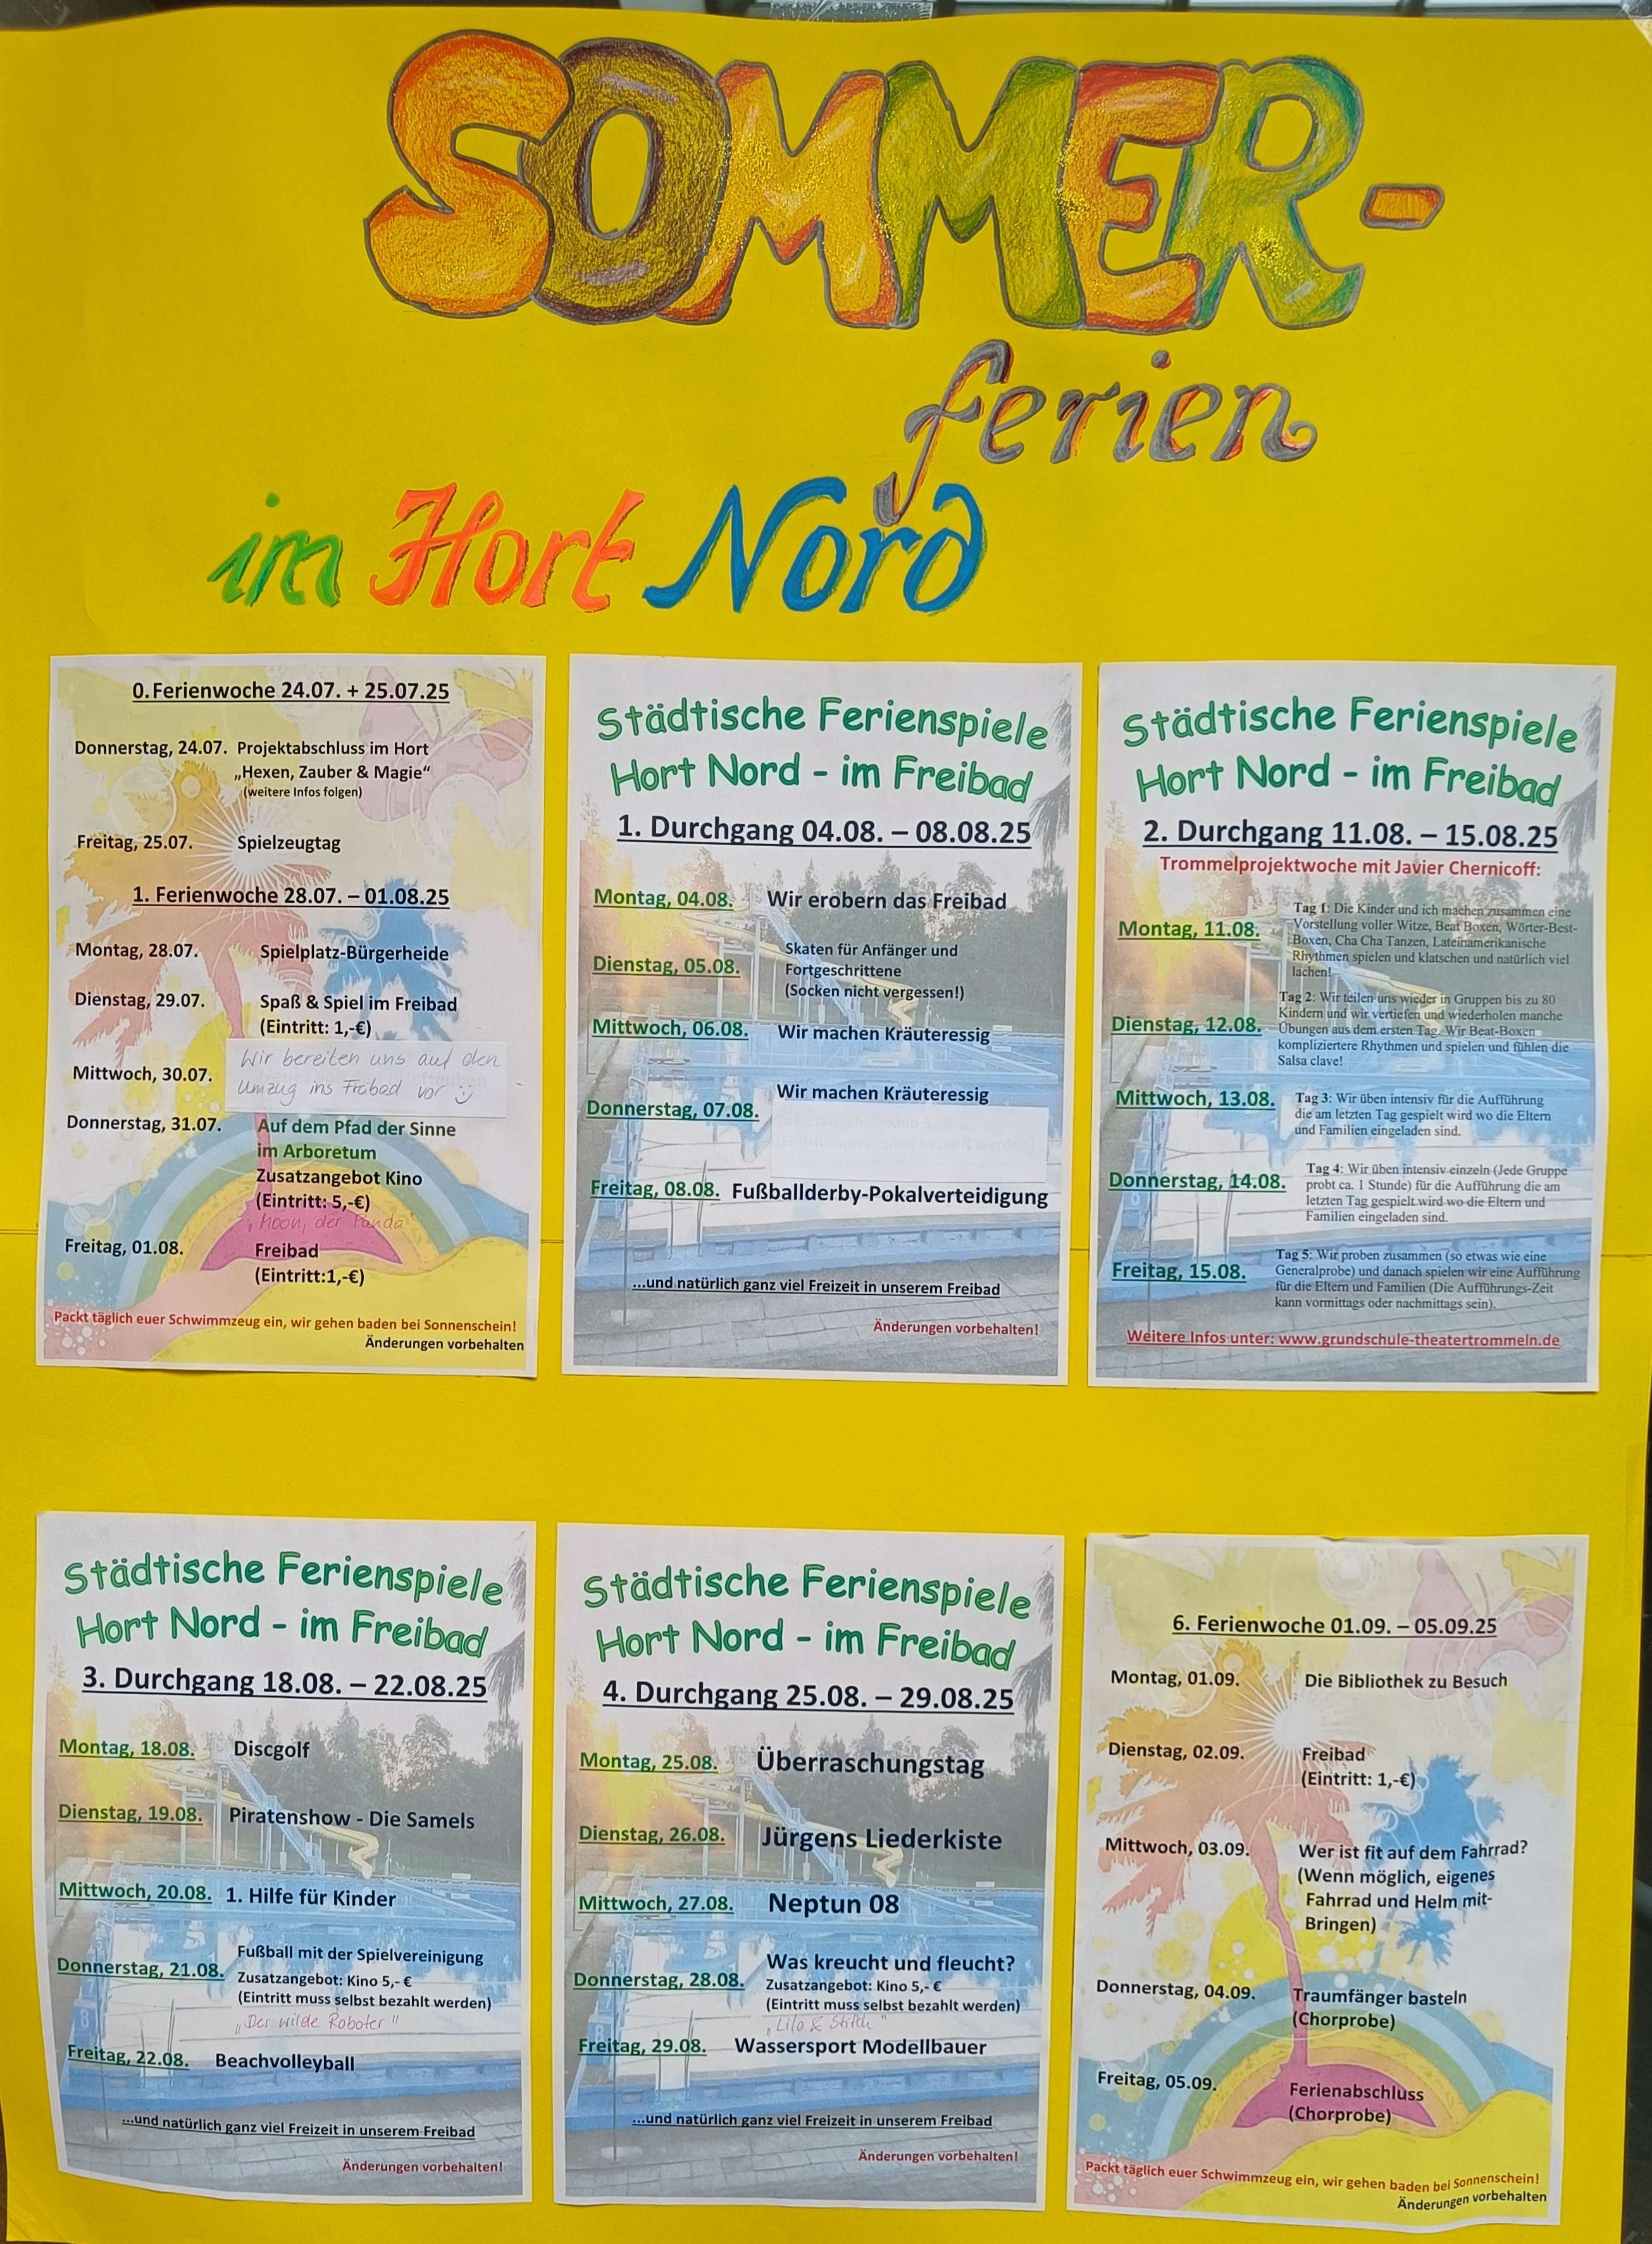 SOMMER-
ferien
im Hort Nord
0.Ferienwoche 24.07. + 25.07.25
Donnerstag, 24.07. Projektabschluss im Hort
„Hexen, Zauber & Magie“
(weitere Infos folgen)
Freitag, 25.07. Spielzeugtag
1. Ferienwoche 28.07. – 01.08.25
Montag, 28.07. Spielplatz-Bürgerheide
Dienstag, 29.07. Spaß & Spiel im Freibad
(Eintritt: 1,-€)
Mittwoch, 30.07. Wir bereiten uns auf den
Umzug ins Freibad vor
Donnerstag, 31.07. Auf dem Pfad der Sinne
im Arboretum
Zusatzangebot Kino
(Eintritt: 5,-€)
der Panda
Freitag, 01.08. Freibad
(Eintritt:1,-€)
Packt täglich euer Schwimmzeug ein, wir gehen baden bei Sonnenschein!
Änderungen vorbehalten
Städtische Ferienspiele
Hort Nord - im Freibad
1. Durchgang 04.08. – 08.08.25
Montag, 04.08. Wir erobern das Freibad
Dienstag, 05.08. Skaten für Anfänger und
Fortgeschrittene
(Socken nicht vergessen!)
Mittwoch, 06.08. Wir machen Kräuteressig
Donnerstag, 07.08. Wir machen Kräuteressig
Freitag, 08.08. Fußballderby-Pokalverteidigung
...und natürlich ganz viel Freizeit in unserem Freibad
Änderungen vorbehalten!
Städtische Ferienspiele
Hort Nord - im Freibad
2. Durchgang 11.08. – 15.08.25
Trommelprojektwoche mit Javier Chernicoff:
Montag, 11.08. Tag 1: Die Kinder und ich machen zusammen eine
Vorstellung voller Witze, Beat Boxen, Wörter-Best-
Boxen, Cha Cha Tanzen, Lateinamerikanische
Rhythmen spielen und klatschen und natürlich viel
lachen!
Dienstag, 12.08. Tag 2: Wir teilen uns wieder in Gruppen bis zu 80
Kindern und wir vertiefen und wiederholen manche
Übungen aus dem ersten Tag. Wir Beat-Boxen
kompliziertere Rhythmen und spielen und fühlen die
Salsa clave!
Mittwoch, 13.08. Tag 3: Wir üben intensiv für die Aufführung
die am letzten Tag gespielt wird wo die Eltern
und Familien eingeladen sind.
Donnerstag, 14.08. Tag 4: Wir üben intensiv einzeln (Jede Gruppe
probt ca. 1 Stunde) für die Aufführung die am
letzten Tag gespielt wird wo die Eltern und
Familien eingeladen sind.
Freitag, 15.08. Tag 5: Wir proben zusammen (so etwas wie eine
Generalprobe) und danach spielen wir eine Aufführung
für die Eltern und Familien (Die Aufführungs-Zeit
kann vormittags oder nachmittags sein).
Weitere Infos unter: www.grundschule-theatertrommeln.de
Städtische Ferienspiele
Hort Nord - im Freibad
3. Durchgang 18.08. – 22.08.25
Montag, 18.08. Discgolf
Dienstag, 19.08. Piratenshow - Die Samels
Mittwoch, 20.08. 1. Hilfe für Kinder
Donnerstag, 21.08. Fußball mit der Spielvereinigung
Zusatzangebot: Kino 5,- €
(Eintritt muss selbst bezahlt werden)
„Der wilde Roboter“
Freitag, 22.08. Beachvolleyball
...und natürlich ganz viel Freizeit in unserem Freibad
Änderungen vorbehalten!
Städtische Ferienspiele
Hort Nord - im Freibad
4. Durchgang 25.08. – 29.08.25
Montag, 25.08. Überraschungstag
Dienstag, 26.08. Jürgens Liederkiste
Mittwoch, 27.08. Neptun 08
Donnerstag, 28.08. Was kreucht und fleucht?
Zusatzangebot: Kino 5,- €
(Eintritt muss selbst bezahlt werden)
„Lilo & Stitch“
Freitag, 29.08. Wassersport Modellbauer
...und natürlich ganz viel Freizeit in unserem Freibad
Änderungen vorbehalten!
6. Ferienwoche 01.09. – 05.09.25
Montag, 01.09. Die Bibliothek zu Besuch
Dienstag, 02.09. Freibad
(Eintritt: 1,-€)
Mittwoch, 03.09. Wer ist fit auf dem Fahrrad?
(Wenn möglich, eigenes
Fahrrad und Helm mit-
Bringen)
Donnerstag, 04.09. Traumfänger basteln
(Chorprobe)
Freitag, 05.09. Ferienabschluss
(Chorprobe)
Packt täglich euer Schwimmzeug ein, wir gehen baden bei Sonnenschein!
Änderungen vorbehalten